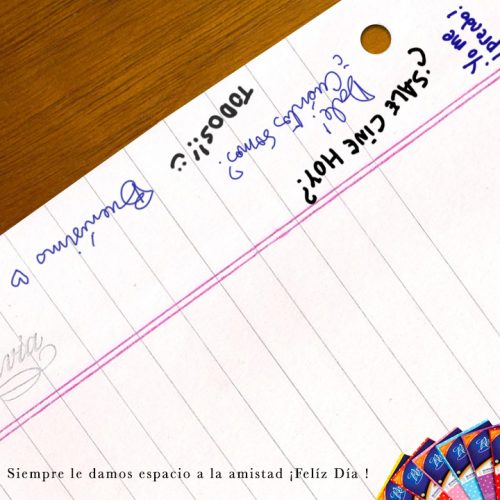 ¿SALE CINE HOY?
¡Yo me
prendo!
Dale!
¿Cuántos somos?
TODOS!!
Buenísimo ♡
Siempre le damos espacio a la amistad ¡Felíz Día !